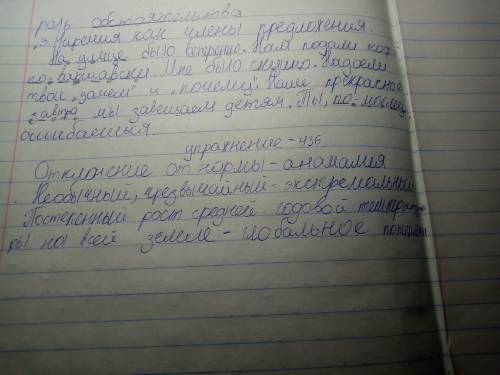 роль обстоятельства
3. Наречия как члены предложения.
На улице было ветрено. Нам подали кофе
по-варшавски. Мне было скучно. Надоели
твои „зачем“ и „почему“. Наше прекрасное
завтра мы завещаем детям. Ты, по-моему,
ошибаешься.
упражнение-436
Отклонение от нормы-аномалия
Необычный, чрезвычайный-экскремальный
Постепенный рост средней годовой температу
ры на всей земле-глобальное